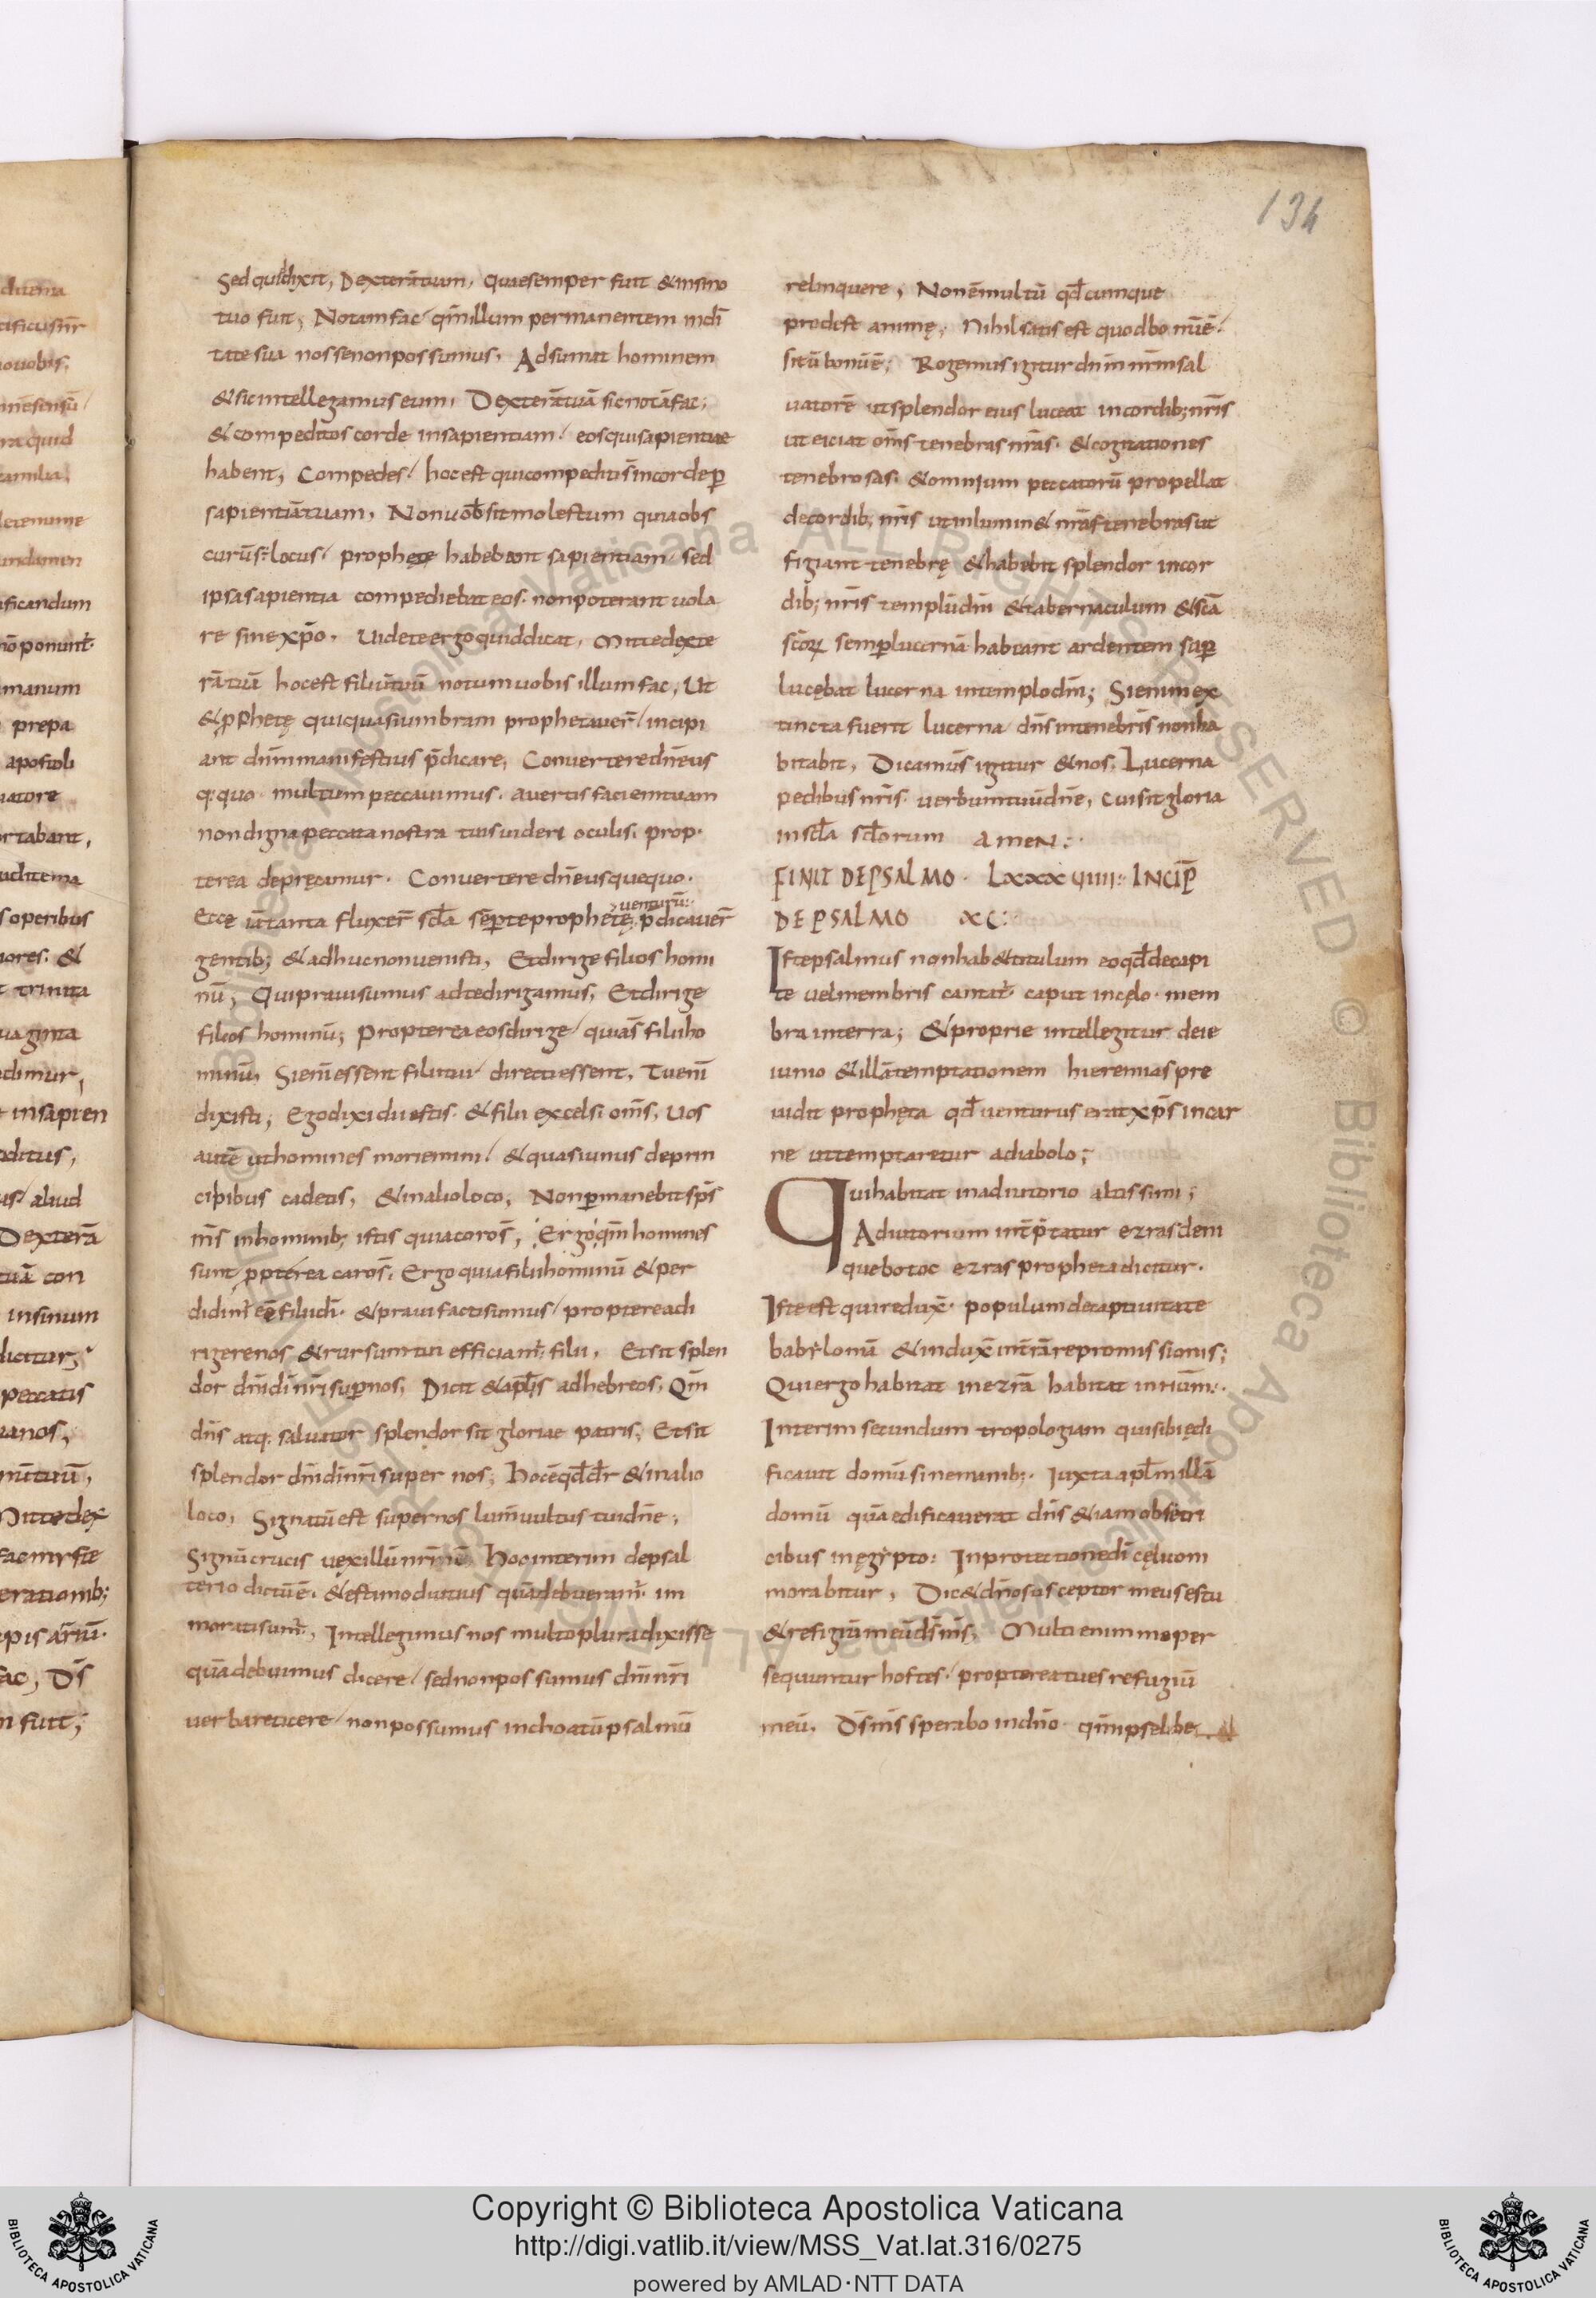 134
Sed quid dixit, Dexterātuam, quaesemper fuit & insino
tuo fuit, Notam fac qm̄ illum permanentem indī
tate sua nosse non possumus, Adsumat hominem
& sic intellegamus eum, Dexterātuā sic notā fac,
& compeditos corde insapientiam eos qui sapientiae
habent, Compedes hoc est qui compediti s̄ in corde ꝑ
sapientiā tuam, Non uob̄ sit molestum quia obs
curus ē locus prophetę habebant sapientiam sed
ipsa sapientia compediebat eos. non poterant uola
re sine xp̄o. Uidete ergo quid dicat, Mitte dexte
rā tuā hoc est filiū tuū notum uobis illum fac, Ut
& ꝓphetę qui quasi umbram prophetauer̄ incipi
ant dn̄m manifestius p̄dicare, Conuertere dn̄e us
q: quo multum peccauimus. auertis faciem tuam
non digna peccata nostra tuis uideri oculis. prop
terea depręcamur. Conuertere dn̄e usquequo.
uenturū
Ecce iā tanta fluxer̄ scl̄a semꝑ te prophetę p̄dicauer̄
gentib; & adhuc non uenisti, Et dirige filios homi
nū, Qui praui sumus ad te dirigamus, Et dirige
filios hominū; Propterea eos dirige quia s̄ filii ho
minū, Si enī essent filii tui directi essent, Tu enī
dixisti, Ego dixi dii estis & filii excelsi oms̄, Uos
autē ut homines moriemini & quasi unus de prin
cipibus cadetis, & in alio loco, Non ꝑmanebit sps̄
ms̄ in hominib; istis quia caro s̄, Ergo qm̄ homines
sunt ꝓpterea caro s̄. Ergo quia filii hominū & per
didim̄ eē filii dī. & praui facti sumus propterea di
rige nos & rursum tui efficiam̄ filii, Et sit splen
dor dn̄i dī nr̄i suꝑ nos, Dicit & apl̄s ad hebreos, Qm̄
dn̄s atq; saluator splendor sit gloriae patris, Et sit
splendor dn̄i dī nr̄i super nos, hoc ē qd̄ dr̄ & in alio
loco, Signatū est super nos lumen uultus tui dn̄e;
Signū crucis uexillū nr̄m ē hoc interim de psal
terio dictū ē. & estimo diutius quā debueram̄ im
morati sum̄, Intellegimus nos multo plura dixisse
quā debuimus dicere sed non possumus dn̄i nr̄i
uerba reticere non possumus inchoatū psalmū
relinquere, Non ē multū qd̄cumque
prodest animę, Nihil satis est quod bonū ē
si tū bonū ē; Rogemus igitur dn̄m nr̄m sal
uatorē ut splendor eius luceat in cordib; nr̄is
ut eiciat oms̄ tenebras nr̄as. & cogitationes
tenebrosas. & omnium peccatorū propellat
de cordib; nr̄is ut inlumin& nr̄as tenebras ut
fugiant tenebrę & habebit splendor in cor
dib; nr̄is templū dn̄i & tabernaculum & scā
scōrꝝ semꝑ lucernā habeant ardentem suꝑ
lucębat lucerna in templo dn̄i; Si enim ex
tincta fuerit lucerna dn̄s in tenebris non ha
bitabit, Dicamus igitur & nos. Lucerna
pedibus nr̄is uerbum tuū dn̄e, cui sit gloria
in scl̄a scl̄orum amen:
FINIT DE PSALMO LXXXVIIII: INCIP̄
DE PSALMO XC:
Iste psalmus non hab& titulum eo qd̄ de capi
te uel membris cantat̄ caput in cęlo mem
bra in terra; & proprie intellegitur de ie
iunio & illā temptationem hieremias pre
uidit prophęta qd̄ uenturus erat xp̄s in car
ne ut temptaretur a diabolo;
Qui habitat in adiutorio altissimi;
Adiutorium int̄p̄tatur ezras deni
que botoc ezras propheta dicitur.
Iste est qui redux̄ populum de captiuitate
babylonū & indux̄ in t̄rā repromissionis;
Qui ergo habitat in ezrā habitat in rium.
Interim secundum tropologiam qui sibi ędi
ficauit domū sine manib; Iuxta apl̄m illā
domū quā edificauerat dn̄s & iam obsetri
cibus in ęgypto: In protectione dī cęli com
morabitur, Dic& dn̄o susceptor meus es tu
& refugiū meū ds̄ ms̄, Multi enim me per
sequuntur hostes propterea tu es refugiū
meū, Ds̄ ms̄ sperabo in dn̄o qm̄ ipse libe
Copyright © Biblioteca Apostolica Vaticana
http://digi.vatlib.it/view/MSS_Vat.lat.316/0275
powered by AMLAD·NTT DATA
BIBLIOTECA APOSTOLICA VATICANA
BIBLIOTECA APOSTOLICA VATICANA